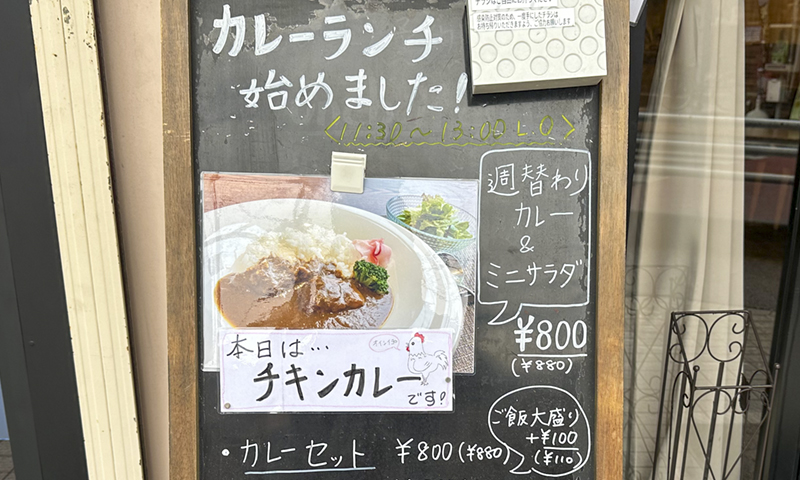 カレーランチ
始めました!
<11:30～15:00 L.O>
週替わり
カレー
&
ミニサラダ
¥800
(¥880)
本日は…
チキンカレー
です!
ご飯大盛り
+¥100
(¥110)
・カレーセット ¥800(¥880)